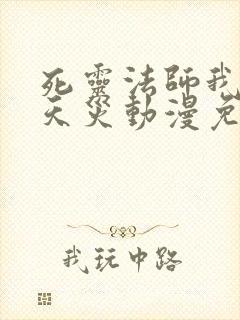 死靈法師我
天災動漫免
我玩中路